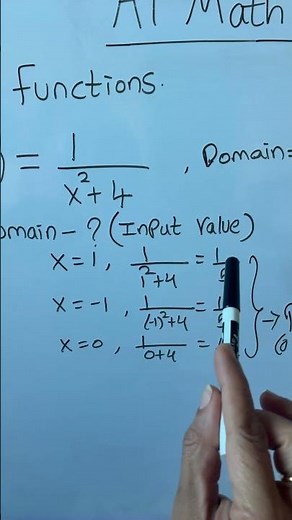 AP Math
functions.
) = 1/(x²+4) , Domain=
omain - ? (Input value)
x=1, 1/(1²+4) = 1/5
x=-1, 1/((-1)²+4) = 1/
x=0, 1/(0+4) = 1/